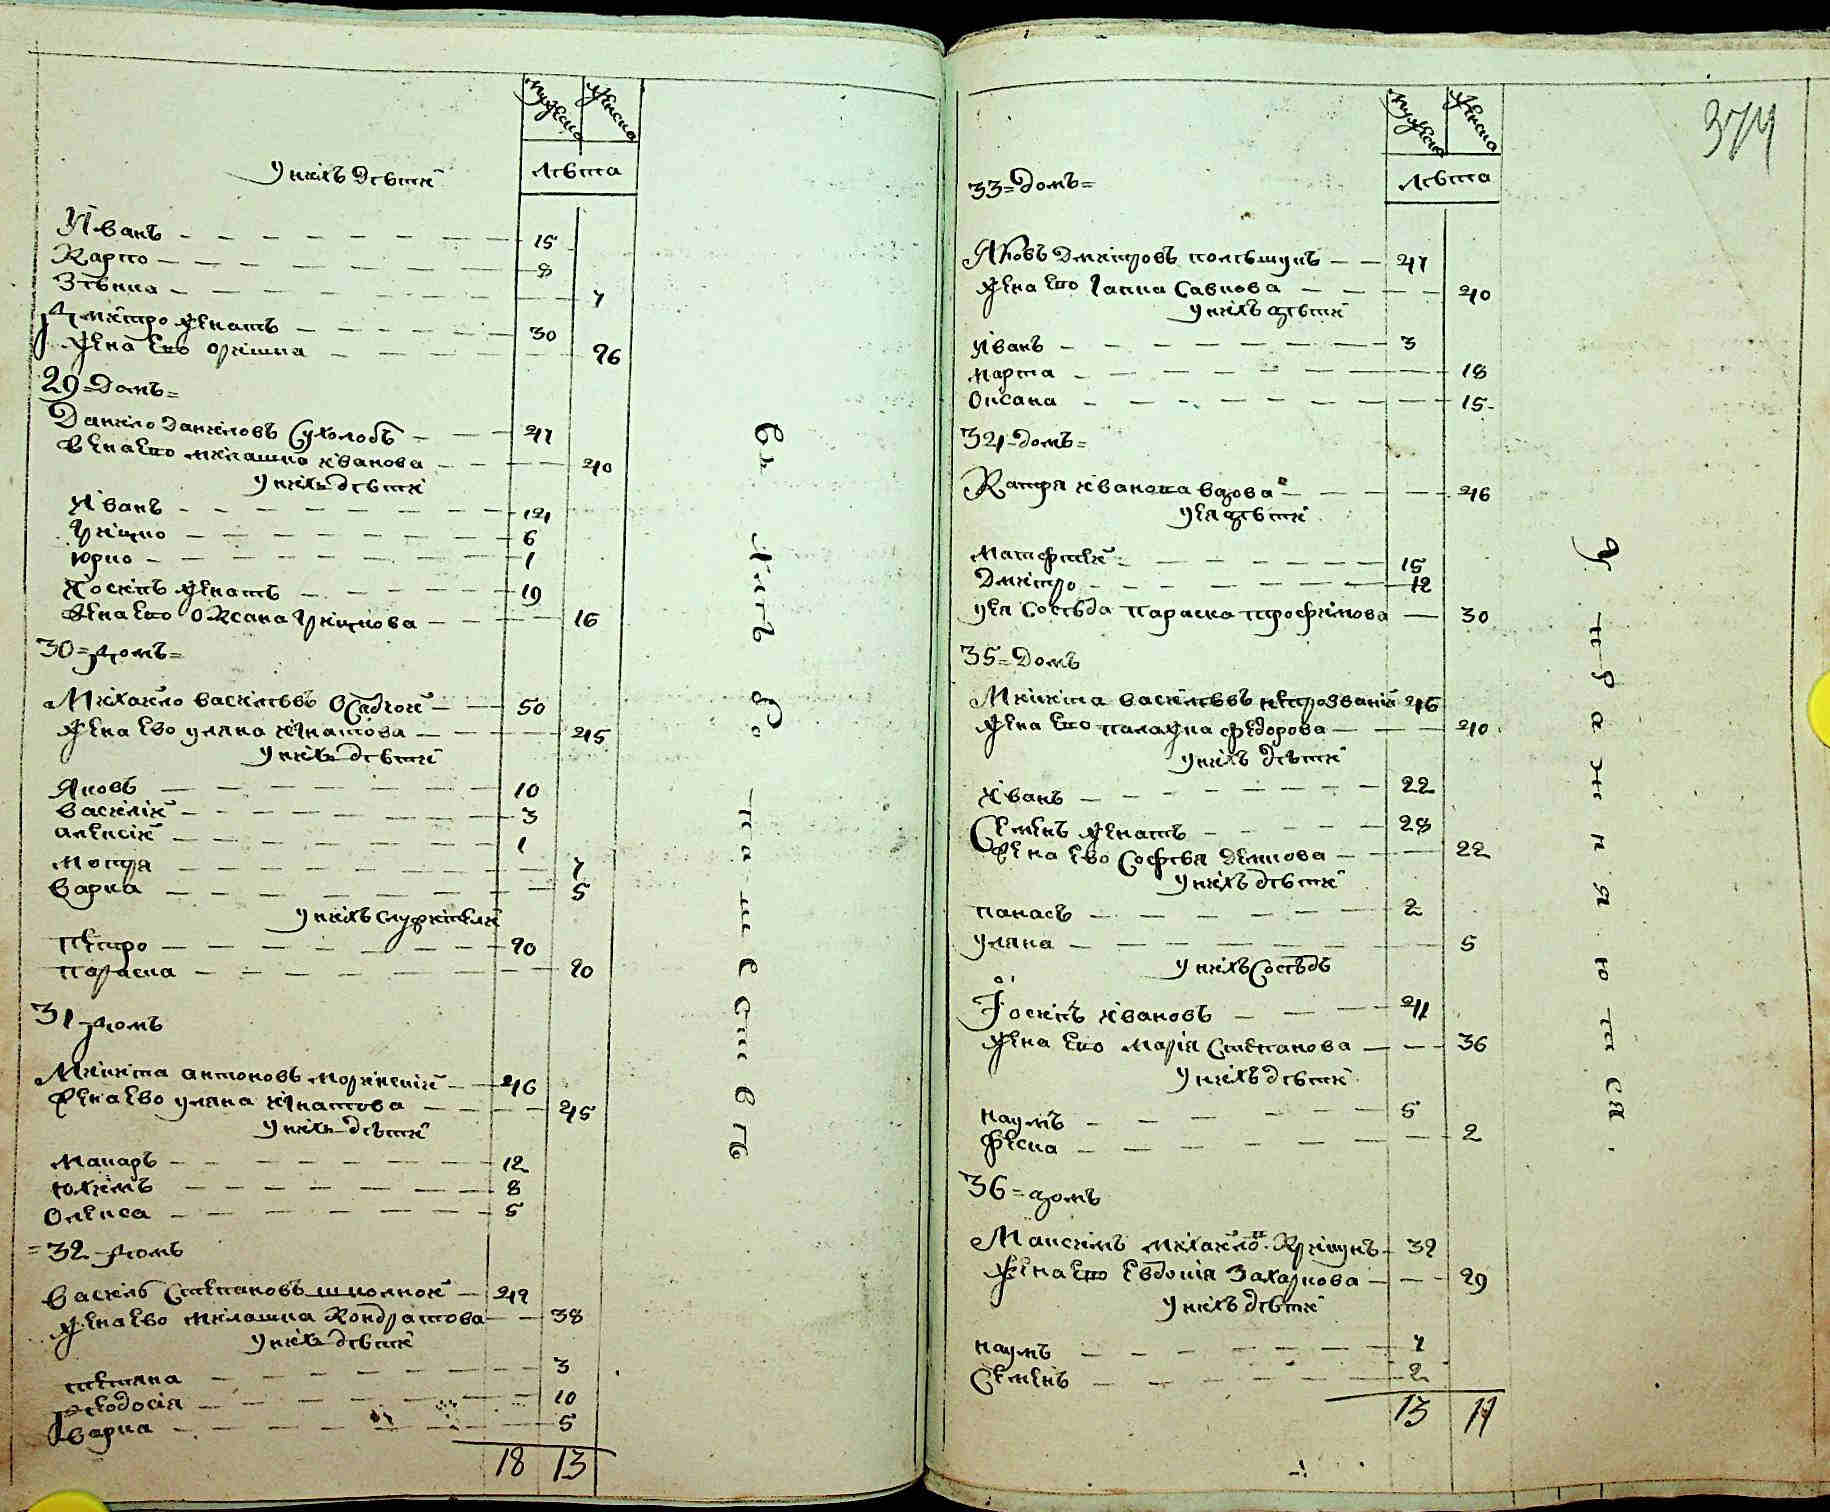 мужеска женска
У нихъ дѣти
лѣта
Иванъ 15
Карпо 8
Зѣнка 7
Дмитро женатъ 30
Жена его Оришка 26
29 = домъ =
Данило Даниловъ Сухолобъ 47
Жена его Милашка Иванова 40
У нихъ дѣти
Иванъ 14
Грицко 6
Юрко 1
Иосипъ женатъ 19
Жена его Оксана Грицкова 16
30 = домъ =
Михайло Василевъ Осадчой 50
Жена его Уляна Игнатова 45
У нихъ дѣти
Яковъ 10
Василій 3
Алексій 1
Мотря 7
Варка 5
У нихъ служители
Петро 20
Параска 20
31 домъ
Микита Антоновъ 46
Жена его Уляна Игнатова 45
У нихъ дѣти
Макаръ 12
Юхимъ 8
Олекса 5
= 32 домъ
Василь Степановъ Школной 42
Жена его Милашка Кондратова 38
У нихъ дѣти
Тетяна 3
Феодосія 10
Варка 5
18 13
въ Литѣ до
постѣвъ
374
мужеска женска
лѣта
33 = домъ =
Яковъ Дмитровъ 47
Жена его Гапка Савкова 40
У нихъ дѣти
Иванъ 3
Марта 18
Оксана 15
34 домъ =
Катря Иванова вдова 46
У ея дѣти
Матфій 15
Дмитро 12
У ея сосѣда Параска Трофимова 30
35 = домъ
Микита Василевъ 46
Жена его Палажка Федорова 40
У нихъ дѣти
Иванъ 22
Семенъ женатъ 28
Жена его Софѣя Демкова 22
У нихъ дѣти
Панасъ 2
Уляна 5
У нихъ сосѣдъ
Іосипъ Ивановъ 41
Жена его Марія Степанова 36
У нихъ дѣти
Наумъ 5
Феска 2
36 = домъ
Максимъ Михайло Крикунъ 32
Жена его Евдокія Захарова 29
У нихъ дѣти
Наумъ 7
Семенъ 2
13 11
Упражняются.